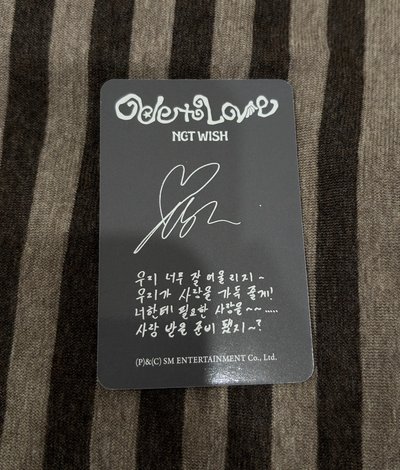 Ode to Love
NCT WISH
우리 너무 잘 어울리지~
우리가 사랑을 가득 줄게!
너한테 필요한 사랑을~~.....
사랑 받을 준비 됐지~?
(P)&(C) SM ENTERTAINMENT Co., Ltd.